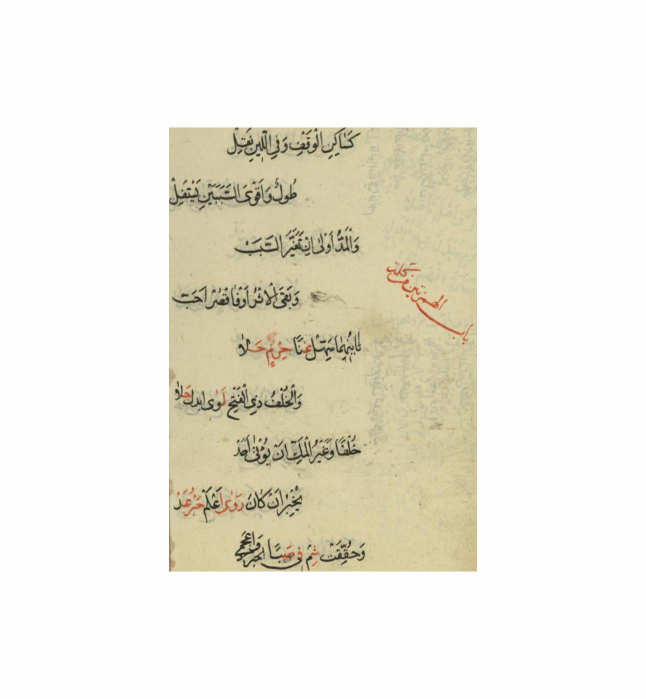 كَسَاكِنِ الْوَقْفِ وَفِي اللِّينِ يَقِلْ
طُولٌ وَأَقْوَى السَّبَبَيْنِ يَسْتَقِلْ
وَالْمَدُّ أَوْلَى إِنْ تَغَيَّرَ السَّبَبْ
وَبَقِيَ الْأَثَرْ أَوْ فَاقْصُرْ أَحَبْ
باب الهمزتين من كلمة
ثَانِيهُمَا سَهِّلْ غِنًا حِرْمٍ حَلَا
وَالْخُلْفُ ذِي الْفَتْحِ لَوَى ابدل جَلَا
خُلْفًا وَغَيْرُ الْمَكِّ أَنْ يُؤْتَى أَحَدْ
يُخْبِرُ أَنْ كَانَ رَوَى اعْلَمْ حَبْرُ عَدْ
وَحُقِّقَتْ شِمْ فِي صَبَا وَأَعْجَمِي